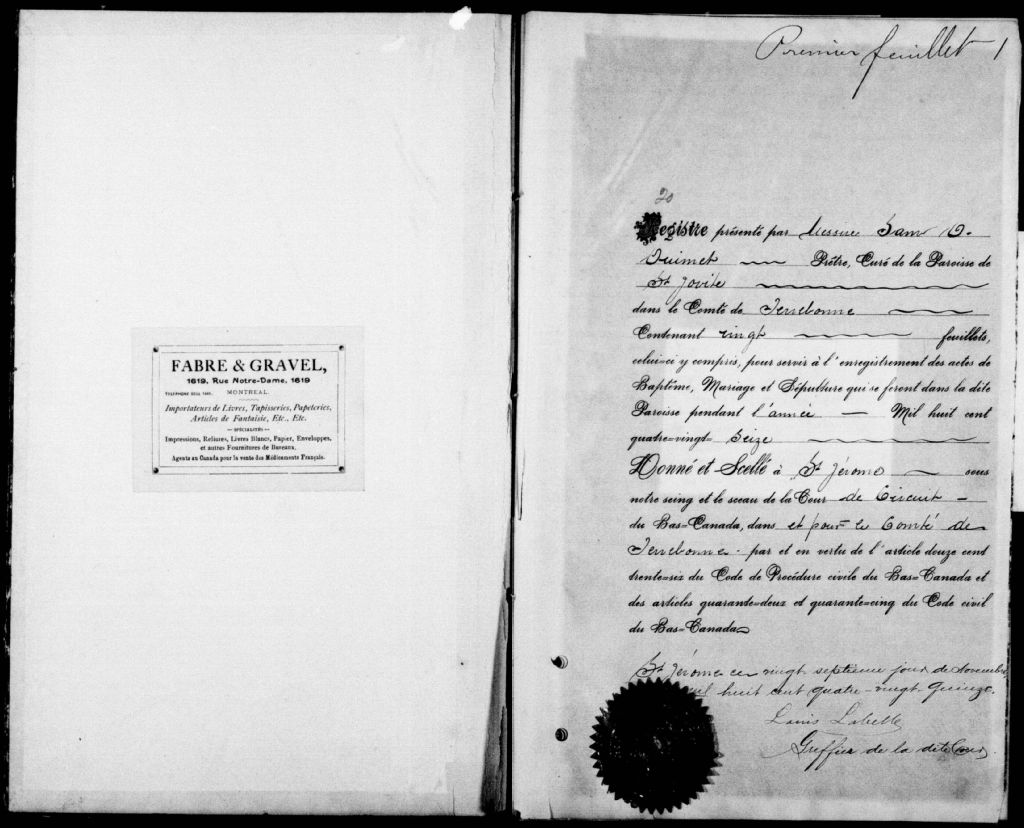 FABRE & GRAVEL,
1619, Rue Notre-Dame, 1619
MONTREAL.
Importateurs de Livres, Tapisseries, Papeteries,
Articles de Fantaisie, Etc., Etc.
— SPÉCIALITÉS —
Impressions, Reliures, Livres Blancs, Papier, Enveloppes,
et autres Fournitures de Bureaux.
Agents au Canada pour la vente des Médicaments Français.
Premier feuillet 1
20
Registre présenté par Messire Sam O.
Ouimet Prêtre, Curé de la Paroisse de
St Jovite
dans le Comté de Terrebonne
Contenant vingt feuillets,
celui-ci y compris, pour servir à l'enregistrement des actes de
Baptême, Mariage et Sépulture qui se feront dans la dite
Paroisse pendant l'année — Mil huit cent
quatre-vingt- Seize
Donné et Scellé à St Jérome sous
notre seing et le sceau de la Cour de Circuit -
du Bas-Canada, dans et pour le Comté de
Terrebonne - par et en vertu de l'article douze cent
trente-six du Code de Procédure civile du Bas-Canada et
des articles quarante-deux et quarante-cinq du Code civil
du Bas-Canada
St Jérome ce vingt septieme jour de Novembre
mil huit cent quatre-vingt Quinze.
Louis Labelle
Greffier de la dite Cour